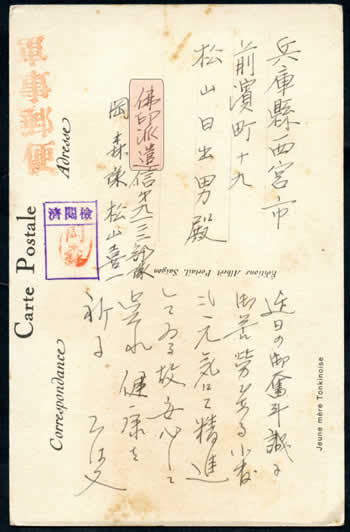 軍事郵便
兵庫縣西宮市
前濱町十九
松山日出男殿
佛印派遣信第九一三部隊
岡森隊松山喜一
檢閲濟
Carte Postale
Adresse
Correspondance
Editions Albert Portail, Saigon
Jeune mère Tonkinoise
近日の御奮斗誠に
御苦労である小生
元気にて精進
してゐる故安心して
健康を
祈る